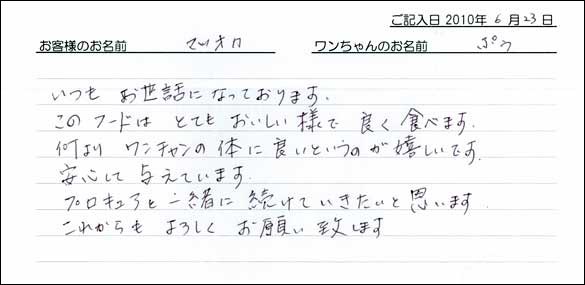 ご記入日 2010年 6月 23日
お客様のお名前 マツオカ ワンちゃんのお名前
いつも お世話になっております.
この フードは とても おいしい様で 良く 食べます.
何より ワンチャンの 体に 良いというのが 嬉しいです.
安心して 与えています.
プロキュアと一緒に 続けていきたいと 思います.
これからも よろしく お願い 致します